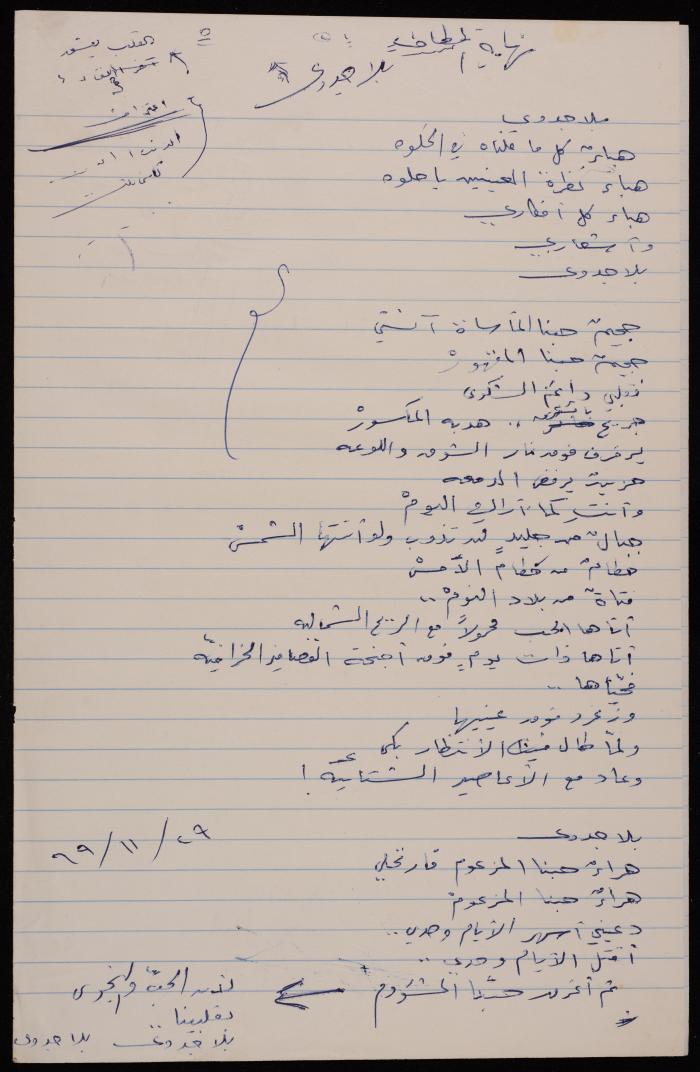 نهاية المطاف
بلا جدوى
القلب
بلا جدوى
هباءٌ كل ما قلناه في الخلوه
هباء نظرة العينين يا حلوه
هباء كل أفكاري
وأشعاري
بلا جدوى
جحيمٌ حبنا المأساة آنستي
جحيمٌ حبنا المقهورْ
فقلبي دائم الشكوى
جريح .. هدبه المكسورْ
يرفرف فوق نار الشوق واللوعه
حزينٌ يرفض الدمعه
وأنتِ كما أراكِ اليومْ
جبالٌ من جليدٍ قد تذوب ولو أتتها الشمسْ
حطامٌ من حطام الأمسْ
فتاةٌ من بلاد النومْ ..
أتاها الحب محمولاً مع الريح الشماليه
أتاها ذات يوم فوق أجنحة العصافير الخرافيّة
فحيّاها ..
وزغرد فوق عينيها
ولمّا طال الانتظار بكى
وعاد مع الأعاصير الشتائيّه !
بلا جدوى
٢٩ / ١١ / ٦٩
هراءٌ حبنا المزعوم فارتحلي
هراءٌ حبنا المزعومْ
دعيني أسهر الأيام وحدي ..
أقتل الأيام وحدي ..
ثم أغرق حبّنا المشؤوم
لأن الحبّ والنجوى
بقلبينا ..
بلا جدوى بلا جدوى